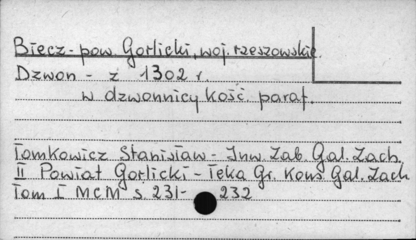 Biecz - pow. Gorlicki, woj. rzeszowskie
Dzwon - z 1302 r.
w dzwonnicy kość. paraf.
Tomkowicz Stanisław - Inw. Zab. Gal. Zach.
II Powiat Gorlicki - Teka Gr. Kons Gal. Zach
Tom I MCM s. 231-232